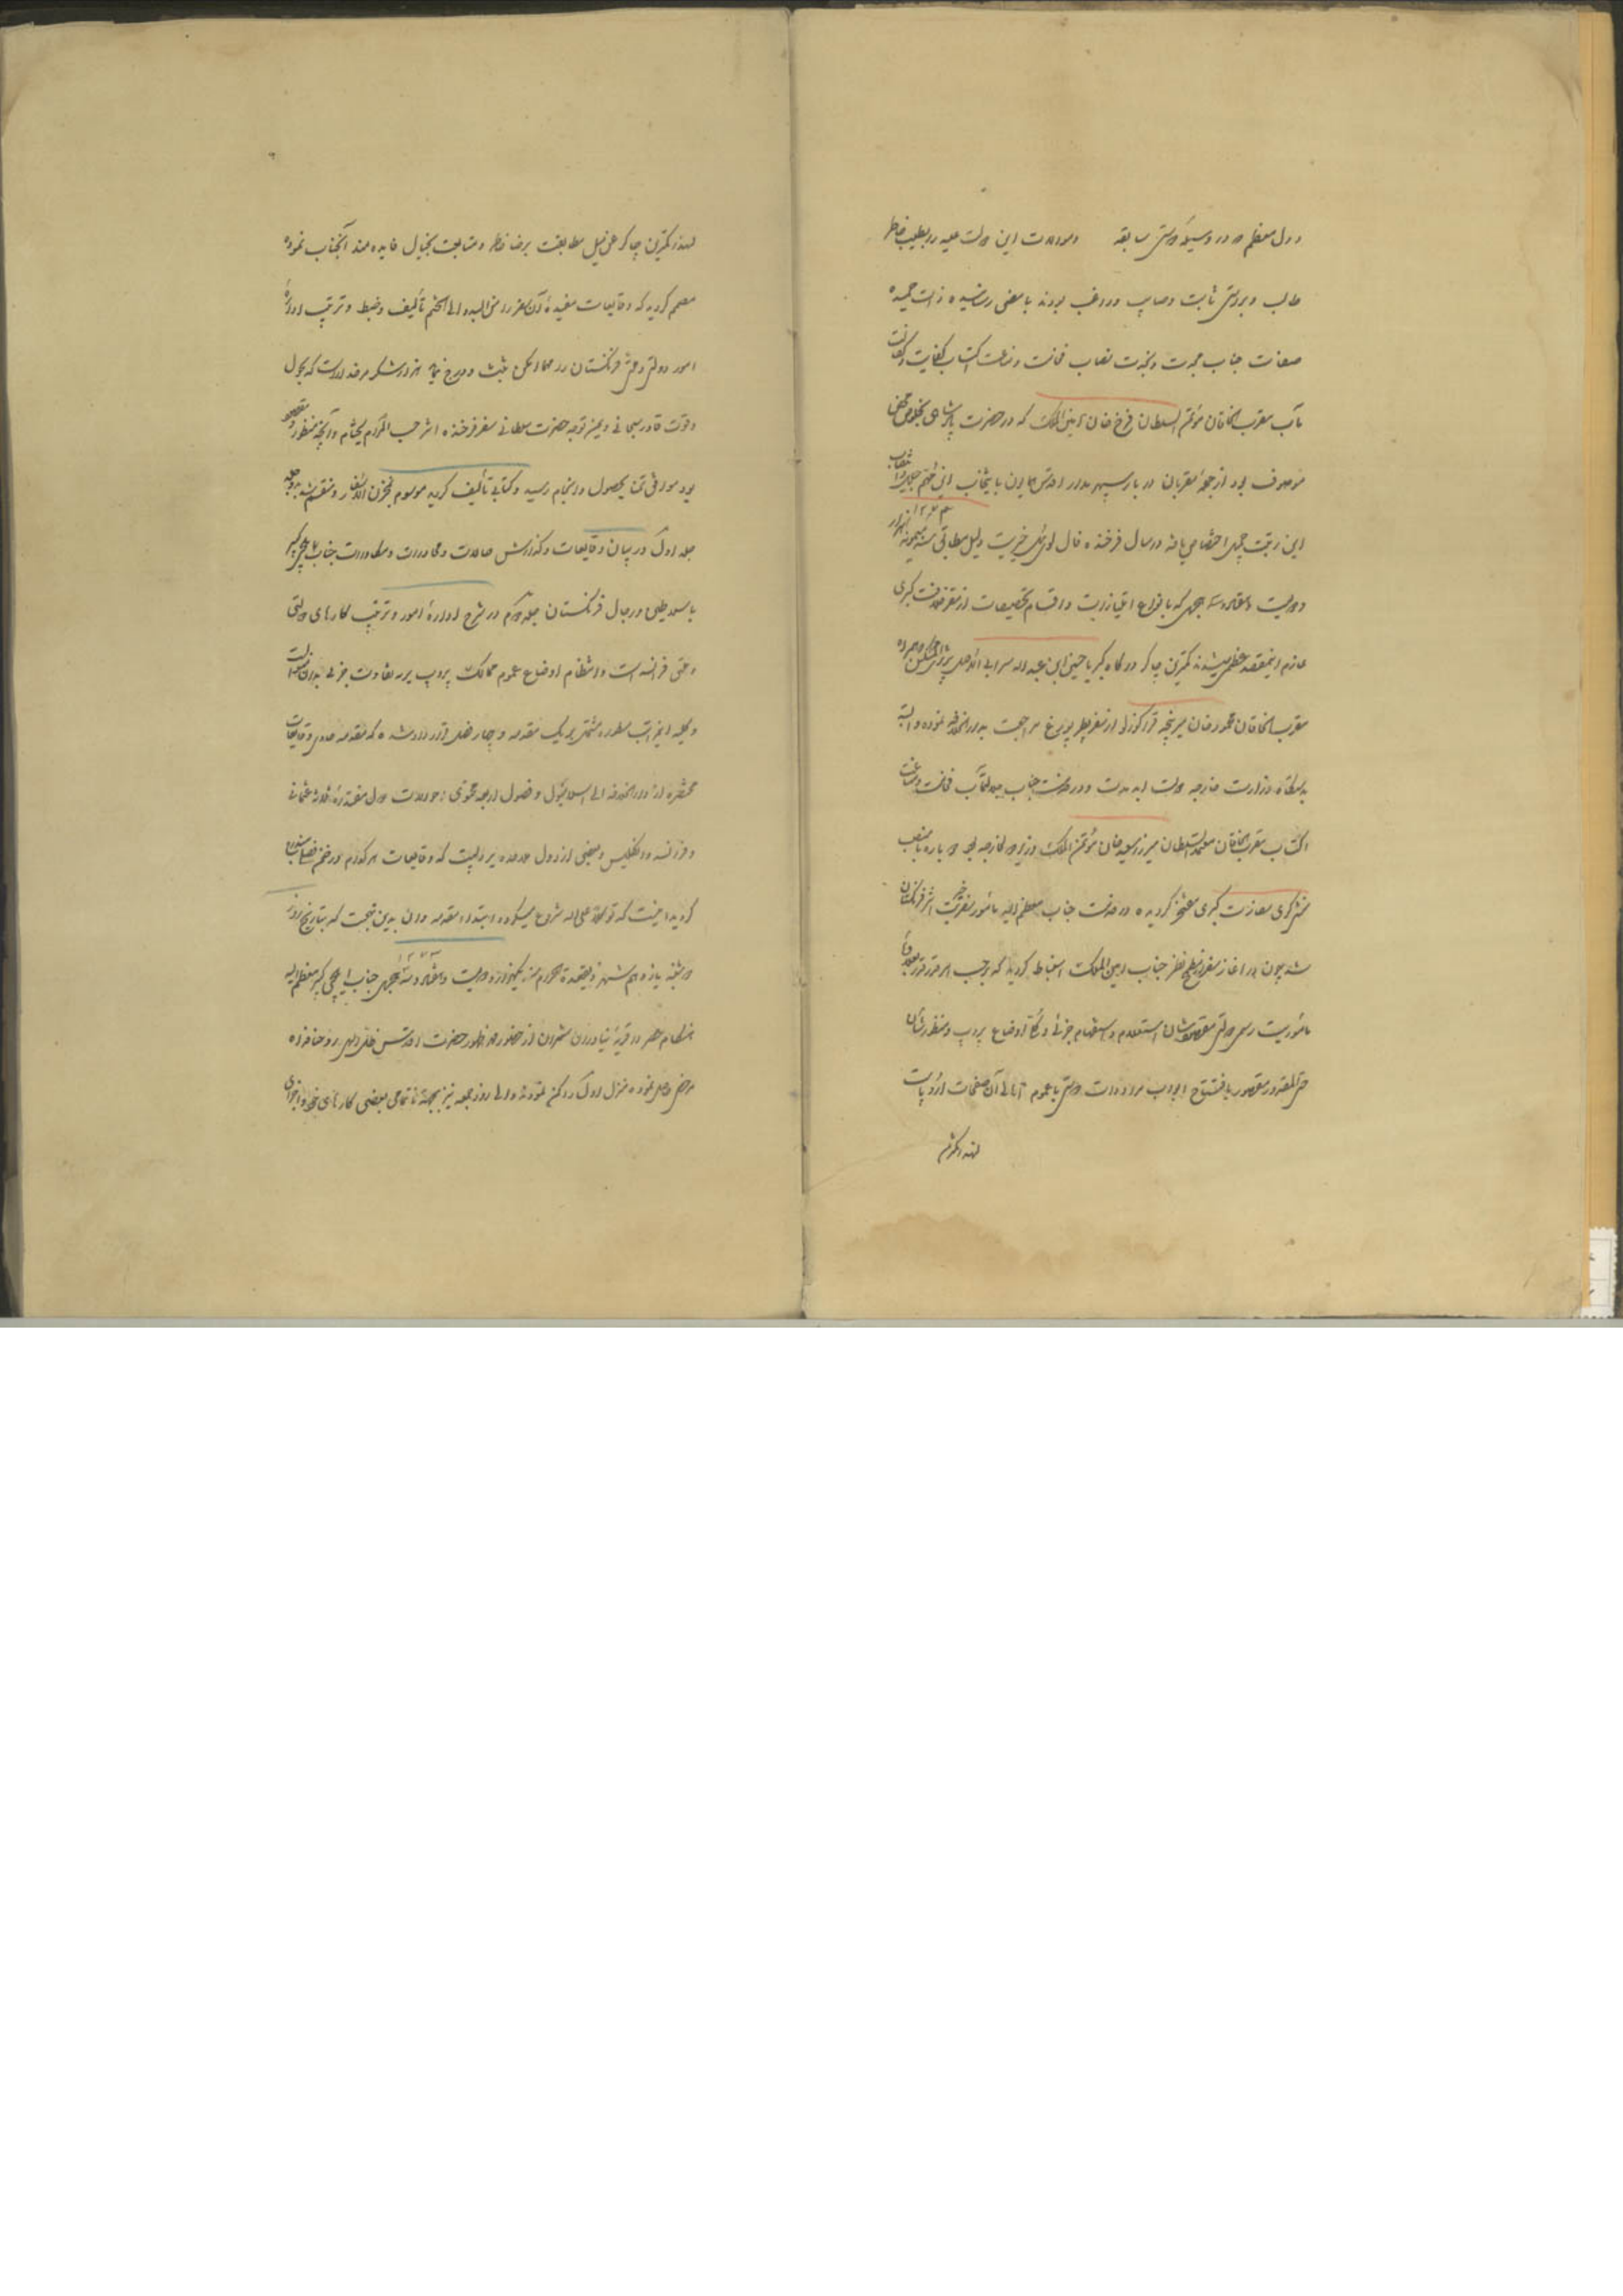 دول معظم و در وسیله دوستی سابقه و موالات این دولت علیه را بطیب خاطر
طالب و بدوستی ثابت و صایب و راغب بودند با معنی رسانیده ذات حمیده
صفات جناب مجدت و نجدت نصاب فخامت و مناعت اکتساب کفایت و کفالت
مآب مقرب الخاقان مؤتمن السلطان فرخ خان امین الملک که در حضرت پادشاهی بخلوص محض
موصوف بود از جمله مقربان دربار سپهر مدار اقدس همایون بایجاب این ختم جلالت انتصاب
این رتبت جمیل اختصاص یافته در سال فرخنده فال لوی ئیل خیریت دلیل مطابق سنه میمونه ۱۲۷۲ هزار
و دویست و هفتاد و سه هجری که با انواع امتیازات و اقسام تخصیصات از مقر خلافت کبری
عازم اینمقصد عظمی میشدند کمترین چاکر درگاه کبریا حسین ابن عبدالله سرابی الاصل تبریزی المسکن که همراه
مقرب الخاقان محمود خان میرپنجه قراگوزلو از سفر پطربورغ مراجعت بدارالخلافه نموده و البته
بدستگاه وزارت خارجه دولت ابد مدت و در خدمت جناب جلالتمآب فخامت و مناعت
اکتساب مقرب الخاقان معتمد السلطان میرزا سعید خان مؤتمن الملک وزیر امور خارجه بود دوباره بمنصب
منشی گری سفارت کبری مفتخر گردیده در خدمت جناب معظم الیه مأمور سفر خیریت اثر فرنگستان
شد چون در آغاز سفر از مطمح نظر جناب امین الملک استنباط گردید که بر حسب امر قدر قدر بعلاوه
مأموریت رسمی دولتی مقصودشان استعلام و استفهام جزئی و کلی اوضاع یروپ و منظورشان
حتی المقدور مقصور بافتتاح ابواب مراودات دوستی با عموم اهالی آن صفحات اروپاست
لهذا کمترین
لهذا کمترین چاکر علی نیل مطابقت برضا خاطر و متابعت بخیال فایده مند آنجناب نموده
مصمم گردید که وقایعات مفیده آن سفر را من البدو الی الختم تألیف و ضبط و ترتیب اداره
امور دولتی و ملتی فرنگستان را مهما امکن ثبت و درج نماید هزار شکر مر خدا راست که بحول
و قوت قادر سبحانی و بیمن توجه حضرت سلطانی سفر فرخنده اثر حسب المرام بختام و آنچه منظور و مقصود
بود موافق تمنا بحصول و انجام رسید و کتابی تألیف گردید موسوم بمخزن الاسفار و منقسم شد بدو جلد
جلد اول در بیان وقایعات و گذارش حالات و محاورات و مطاورات جناب ایلچی کبیر
با سلاطین و رجال فرنگستان جلد دویم در شرح اداره امور و ترتیب کارهای دولتی
و ملتی فرانسه است و انتظام اوضاع عموم ممالک یروپ بر تفاوت جزئی بدان منوال است
و جلد اینمراتب مسطوره مشتمل بر یک مقدمه و چهار فصل قرار داده شده که مقدمه حاوی وقایعات
مختصره از دارالخلافه الی اسلامبول و فصول اربعه محتوی احوالات دول مقتدره ثلاثه عثمانی
و فرانسه و انگلیس و بعضی از دول یروپ است که وقایعات هر کدام در ضمن فصلی مندرج
گردید امید است که توکلاً علی الله شروع میگردد ابتداء مقدمه و ان بدین نهجت که بتاریخ روز
دوشنبه یازدهم شهر ذیقعدة الحرام سنه یکهزار و دویست و هفتاد و دو ۱۲۷۲ هجری جناب ایلچی کبیر معظم الیه
هنگام عصر در قریه نیاوران شمیران از حضور مهر ظهور حضرت اقدس ظل اللهی روحنا فداه
مرخصی حاصل نموده منزل اول را کن نمودند و الی روز جمعه نیز بجهت ناتمامی بعضی کارهای خود و اجزای